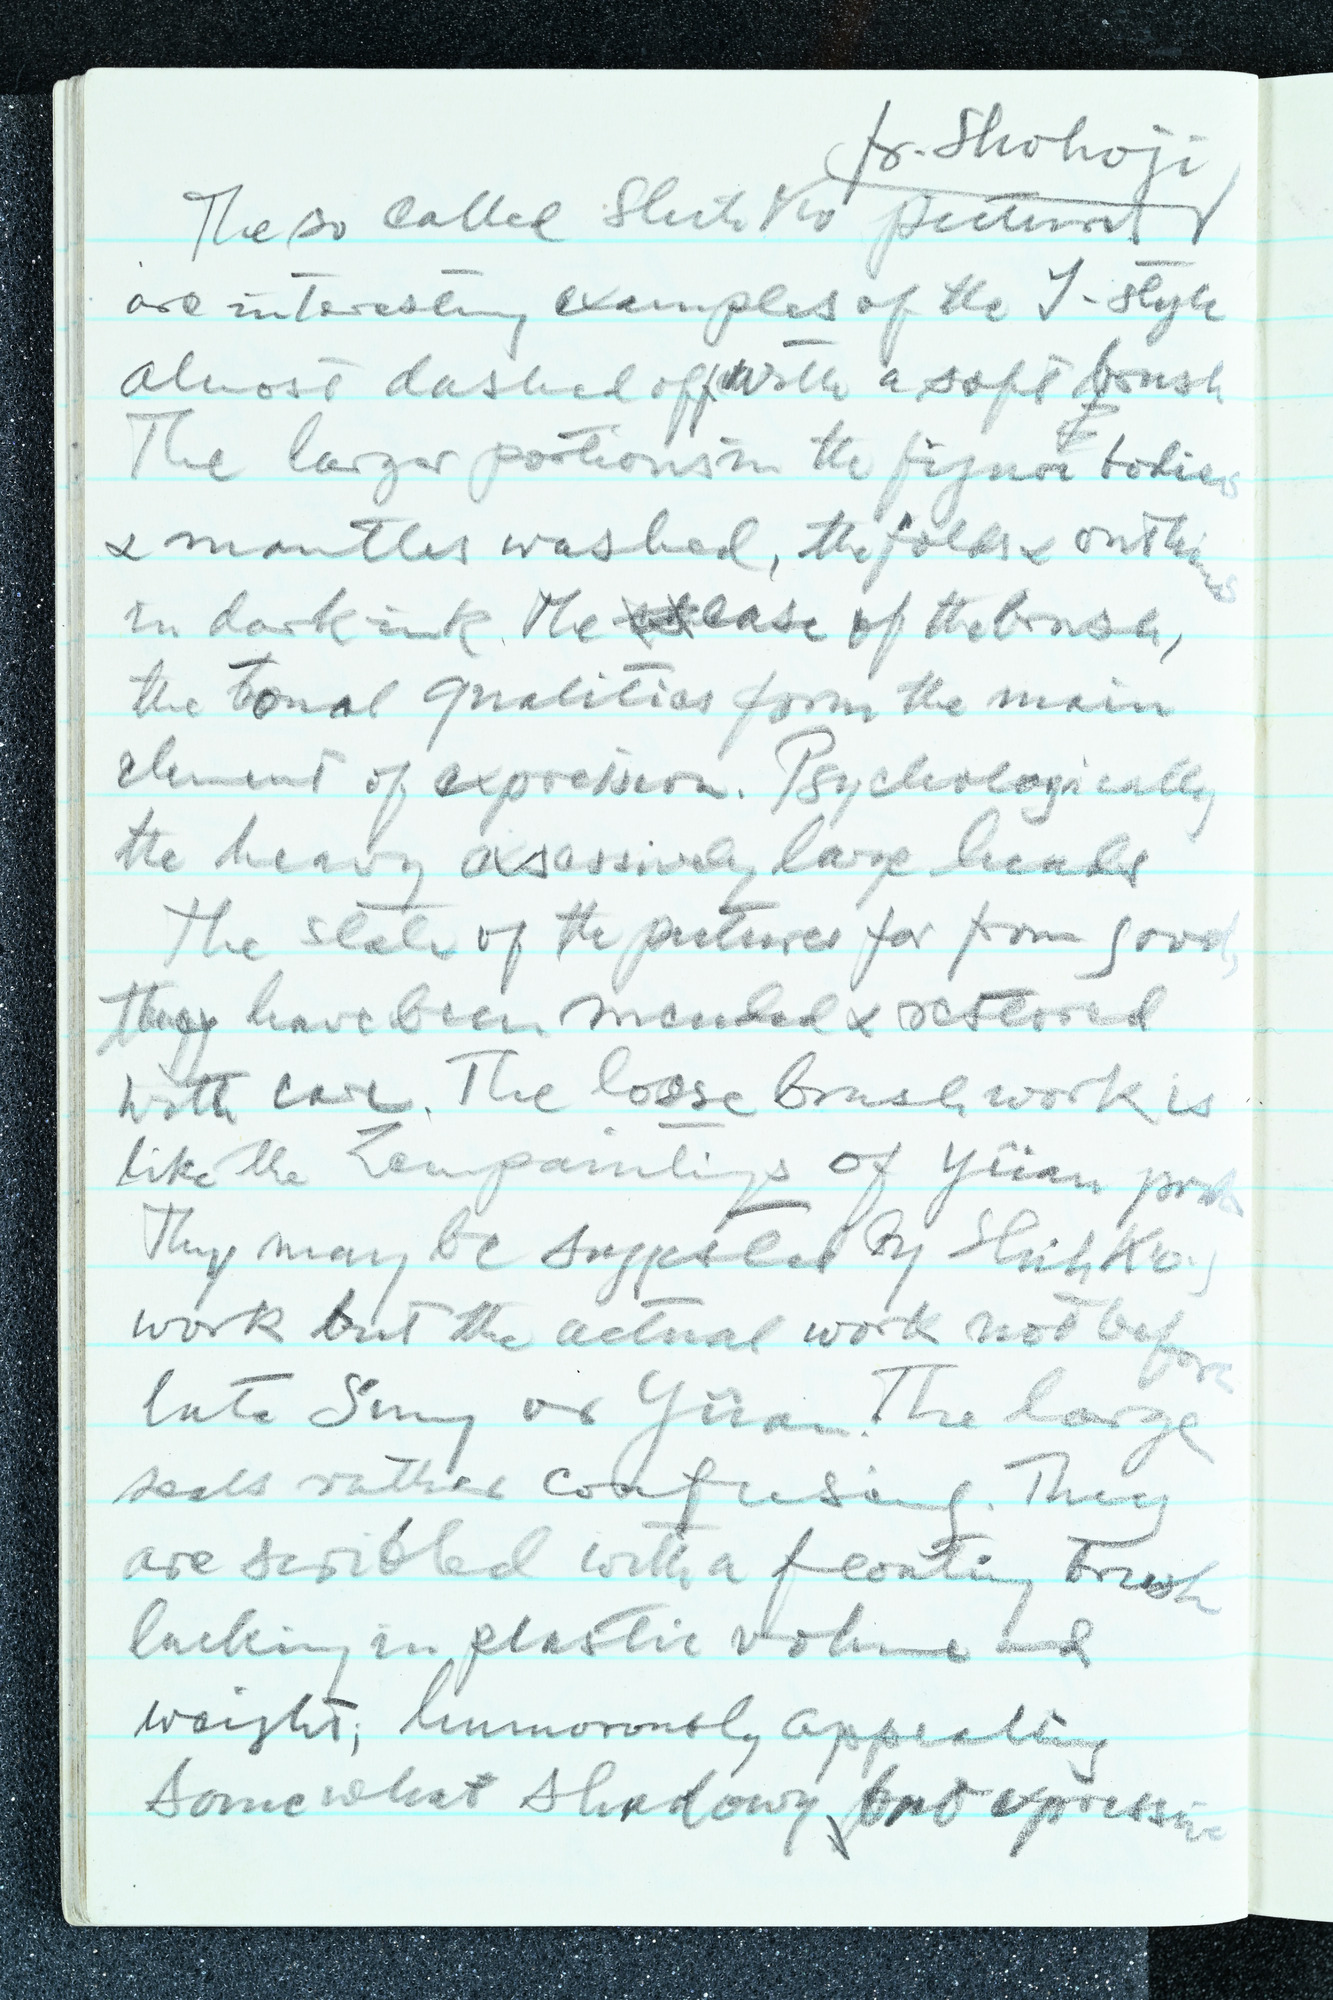 fr. Shohoji
The so called Shih Ko pictures
are interesting examples of the I-style
almost dashed off with a soft brush
The larger portions in the figure bodies
& mantles washed, the folds & outlines
in dark ink. The ease of the brush,
the tonal qualities form the main
element of expression. Psychologically
the heavy exsessively large heads
The state of the pictures far from good,
they have been mended & restored
with care. The loose brushwork is
like the Zen paintings of Yüan
They may be suggested by Shih Ko's
work but the actual work not before
late Sung or Yüan. The large
seals rather confusing. They
are scribbled with a floating brush
lacking in plastic volume and
weight, humorously appealing
somewhat shadowy, but expressive